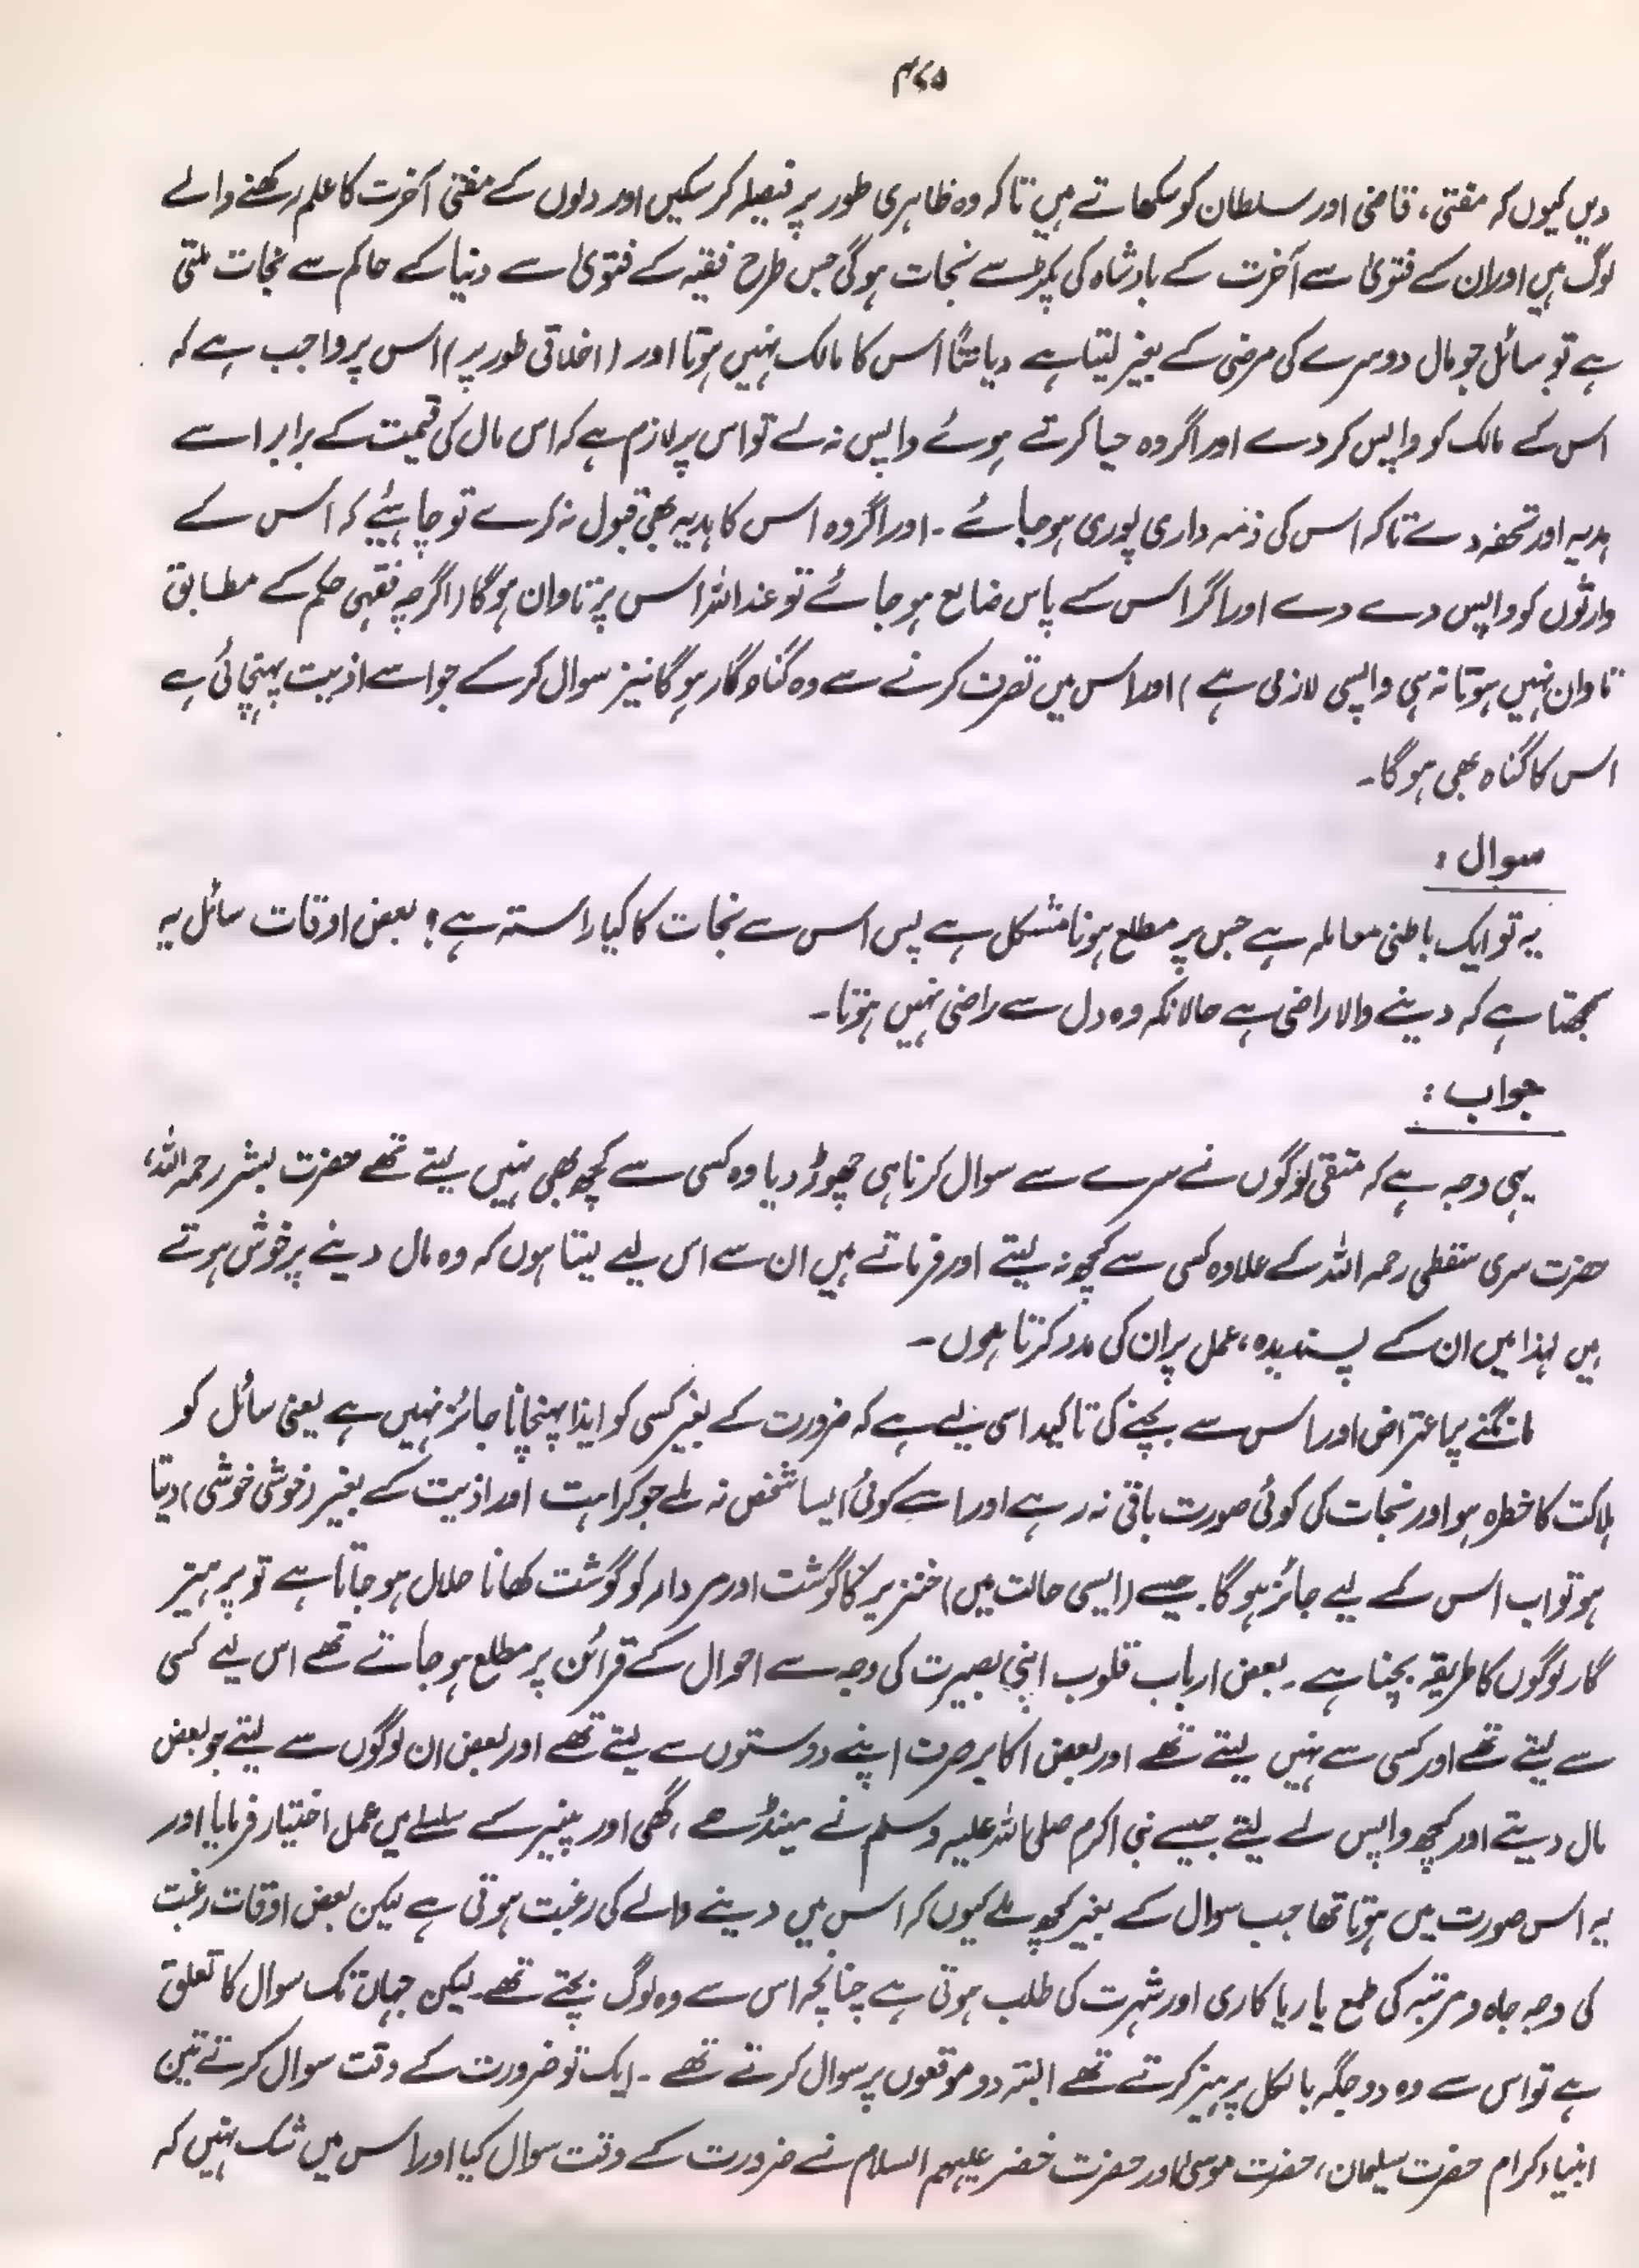 ۴۷۵
دیں کیوں کہ مفتی، قاضی اور سلطان کو سکھاتے ہیں تاکہ وہ ظاہری طور پر فیصلہ کر سکیں اور دلوں کے مفتی آخرت کا علم رکھنے والے
لوگ ہیں اور ان کے فتویٰ سے آخرت کے بادشاہ کی پکڑ سے نجات ہوگی جس طرح فقیہ کے فتویٰ سے دنیا کے حاکم سے نجات ملتی
ہے تو سائل جو مال دوسرے کی مرضی کے بغیر لیتا ہے دیانتًا اس کا مالک نہیں ہوتا اور (اخلاقی طور پر) اس پر واجب ہے کہ
اس کے مالک کو واپس کر دے اور اگر وہ حیا کرتے ہوئے واپس نہ لے تو اس پر لازم ہے کہ اس مال کی قیمت کے برابر اسے
ہدیہ اور تحفہ دے تاکہ اس کی ذمہ داری پوری ہوجائے ۔ اور اگر وہ اس کا ہدیہ بھی قبول نہ کرے تو چاہئیے کہ اس کے
وارثوں کو واپس دے دے اور اگر اس کے پاس ضایع ہو جائے تو عنداللہ اس پر تاوان ہوگا (اگرچہ فقہی حکم کے مطابق
تاوان نہیں ہوتا نہ ہی واپسی لازمی ہے) اور اس میں تصرف کرنے سے وہ گناہ گار ہوگا نیز سوال کرکے جو اسے اذیت پہنچائی ہے
اس کا گناہ بھی ہوگا۔
سوال :
یہ تو ایک باطنی معاملہ ہے جس پر مطلع ہونا مشکل ہے پس اس سے نجات کا کیا راستہ ہے؟ بعض اوقات سائل یہ
سمجھتا ہے کہ دینے والا راضی ہے حالانکہ وہ دل سے راضی نہیں ہوتا۔
جواب :
یہی وجہ ہے کہ متقی لوگوں نے سرے سے سوال کرنا ہی چھوڑ دیا وہ کسی سے کچھ بھی نہیں لیتے تھے حضرت بشر رحمہ اللہ،
حضرت سری سقطی رحمہ اللہ کے علاوہ کسی سے کچھ نہ لیتے اور فرماتے ہیں ان سے اس لیے لیتا ہوں کہ وہ مال دینے پر خوش ہوتے
ہیں لہذا میں ان کے پسندیدہ، عمل پر ان کی مدد کرتا ہوں۔
مانگنے پر اعتراض اور اس سے بچنے کی تاکید اسی لیے ہے کہ ضرورت کے بغیر کسی کو ایذا پہنچانا جائز نہیں ہے یعنی سائل کو
ہلاکت کا خطرہ ہو اور نجات کی کوئی صورت باقی نہ رہے اور اسے کوئی ایسا شخص نہ ملے جو کراہت اور اذیت کے بغیر (خوشی خوشی) دیتا
ہو تو اب اس کے لیے جائز ہوگا۔ جیسے (ایسی حالت میں) خنزیر کا گوشت اور مردار کو گوشت کھانا حلال ہو جاتا ہے تو پرہیز
گار لوگوں کا طریقہ بچنا ہے ۔ بعض ارباب قلوب اپنی بصیرت کی وجہ سے احوال کے قرائن پر مطلع ہو جاتے تھے اس لیے کسی
سے لیتے تھے اور کسی سے نہیں لیتے تھے اور بعض اکابر صرف اپنے دوستوں سے لیتے تھے اور بعض ان لوگوں سے لیتے جو بعض
مال دیتے اور کچھ واپس لے لیتے جیسے نبی اکرم صلی اللہ علیہ وسلم نے مینڈھے ، گھی اور پنیر کے سلسلے میں عمل اختیار فرمایا اور
یہ اس صورت میں ہوتا تھا جب سوال کے بغیر کچھ ملے کیوں کہ اس میں دینے والے کی رغبت ہوتی ہے لیکن بعض اوقات رغبت
کی وجہ جاہ و مرتبہ کی طمع یا ریا کاری اور شہرت کی طلب ہوتی ہے چنانچہ اس سے وہ لوگ بچتے تھے۔ لیکن جہاں تک سوال کا تعلق
ہے تو اس سے وہ دو جگہ بالکل پرہیز کرتے تھے البتہ دو موقعوں پر سوال کرتے تھے ۔ ایک تو ضرورت کے وقت سوال کرتے تین
انبیاء کرام حضرت سلیمان، حضرت موسیٰ اور حضرت خضر علیہم السلام نے ضرورت کے وقت سوال کیا اور اس میں شک نہیں کہ